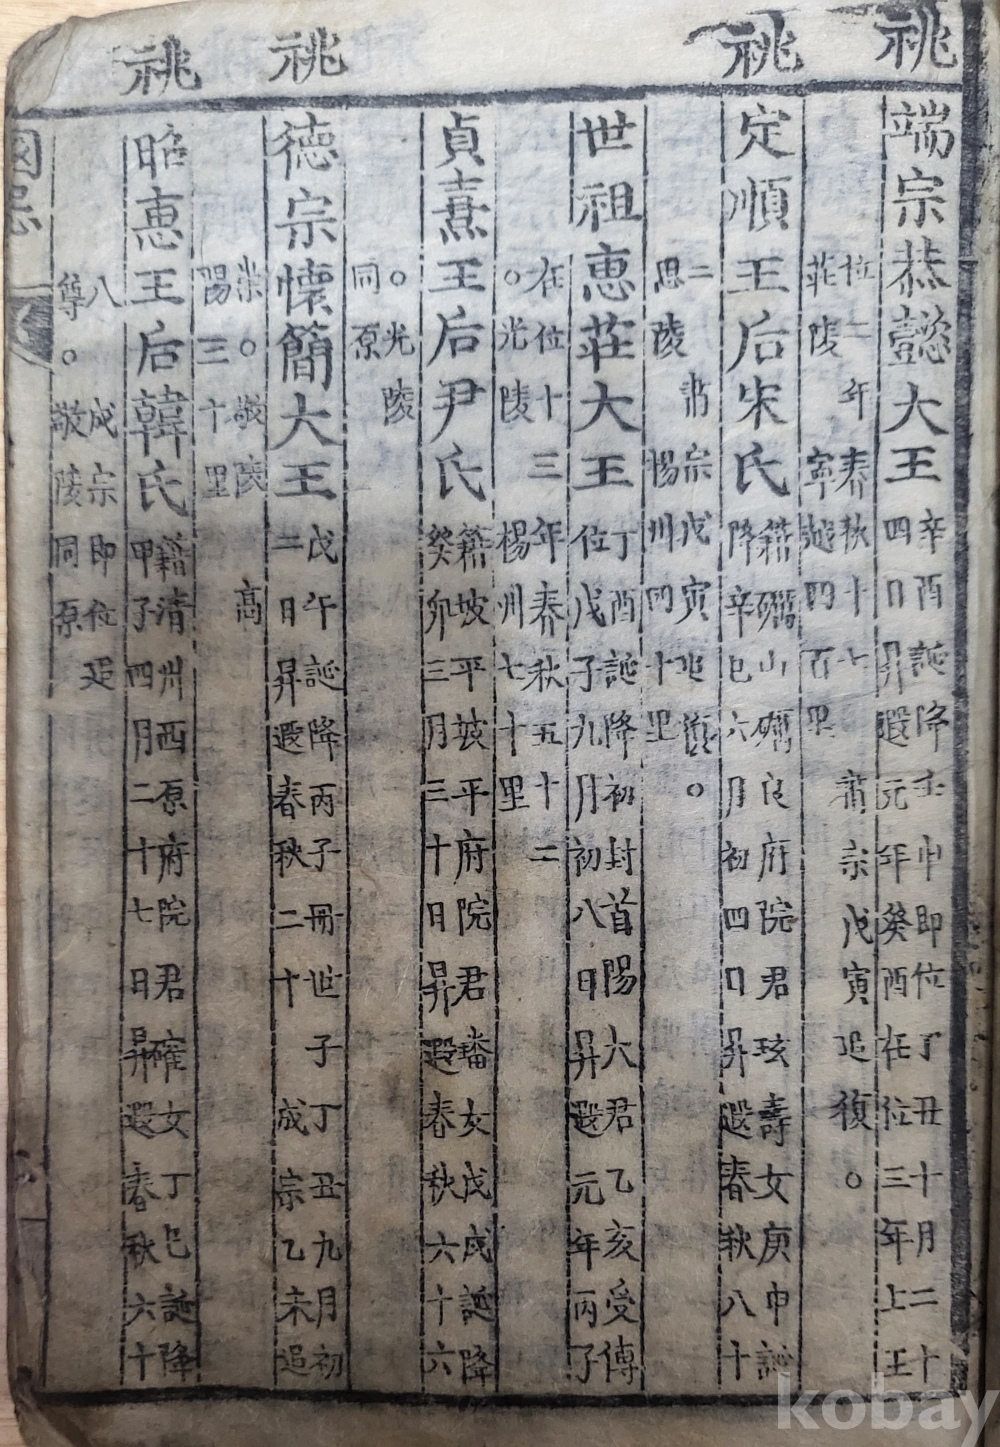 祧
端宗恭懿大王
辛酉誕降壬申即位丁丑十月二十
四日昇遐元年癸酉在位三年上王
位二年春秋十七　肅宗戊寅追復。
莊陵　寧越四百里
祧
定順王后宋氏
籍礪山礪良府院君玹壽女庚申誕
降辛巳六月初四日昇遐春秋八十
二　肅宗戊寅追復。
思陵　楊州四十里
世祖惠莊大王
丁酉誕降初封首陽大君乙亥受傳
位戊子九月初八日昇遐元年丙子
在位十三年春秋五十二
。光陵楊州七十里
貞熹王后尹氏
籍坡平坡平府院君璠女戊戌誕降
癸卯三月三十日昇遐春秋六十六
。光陵
同原
祧
德宗懷簡大王
戊午誕降丙子冊世子丁丑九月初
二日昇遐春秋二十　成宗乙未追
崇。敬陵　高
陽三十里
祧
昭惠王后韓氏
籍清州西原府院君確女丁巳誕降
甲子四月二十七日昇遐春秋六十
八　成宗即位追
尊。敬陵同原
國忌
kobay